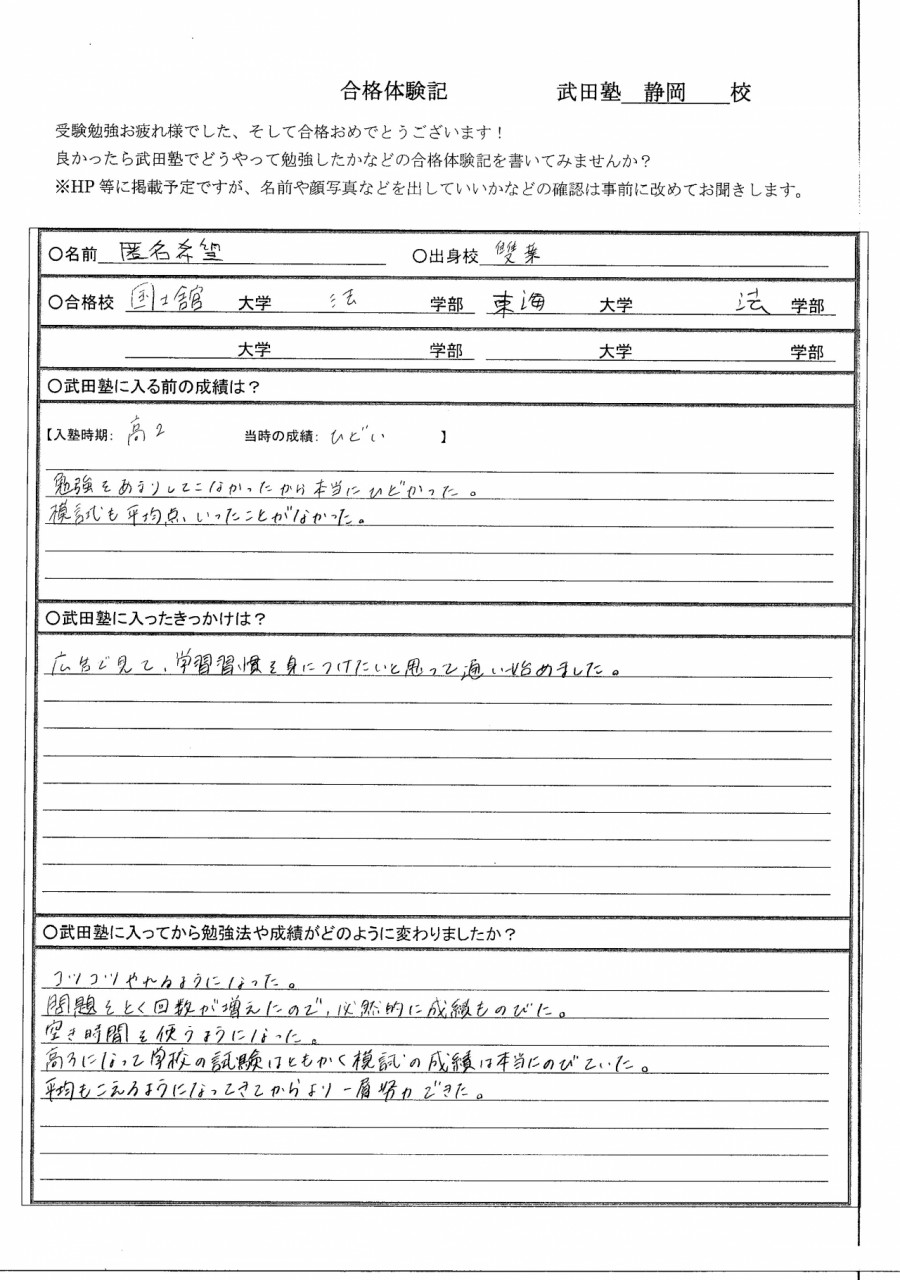 合格体験記 武田塾 静岡 校
受験勉強お疲れ様でした、そして合格おめでとうございます！
良かったら武田塾でどうやって勉強したかなどの合格体験記を書いてみませんか？
※HP 等に掲載予定ですが、名前や顔写真などを出していいかなどの確認は事前に改めてお聞きします。
〇名前 匿名希望 〇出身校 雙葉
〇合格校 国士舘 大学 法 学部 東海 大学 法 学部
大学 学部 大学 学部
〇武田塾に入る前の成績は？
【入塾時期: 高2 当時の成績: ひどい 】
勉強をあまりしてこなかったから本当にひどかった。
模試も平均点いったことがなかった。
〇武田塾に入ったきっかけは？
広告で見て、学習習慣を身につけたいと思って通い始めました。
〇武田塾に入ってから勉強法や成績がどのように変わりましたか？
コツコツやれるようになった。
問題をとく回数が増えたので、必然的に成績ものびた。
空き時間を使うようになった。
高3になって学校の試験はともかく模試の成績は本当にのびていた。
平均もこえるようになってきてからより一層努力できた。